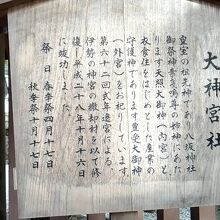 大神宮社
皇室の祖先神であり八坂神社
御祭神素戔嗚尊の姉神にあた
ります天照大御神（内宮）と
衣食住をはじめとし産業の
守護神であります豊受大御神
（外宮）をお祀りしています。
第六十二回式年遷宮による
伊勢の神宮の撤却材を以て修
復し平成二十八年十月十六日
に竣功しました。
祭日 春季祭四月十七日
秋季祭十月十七日